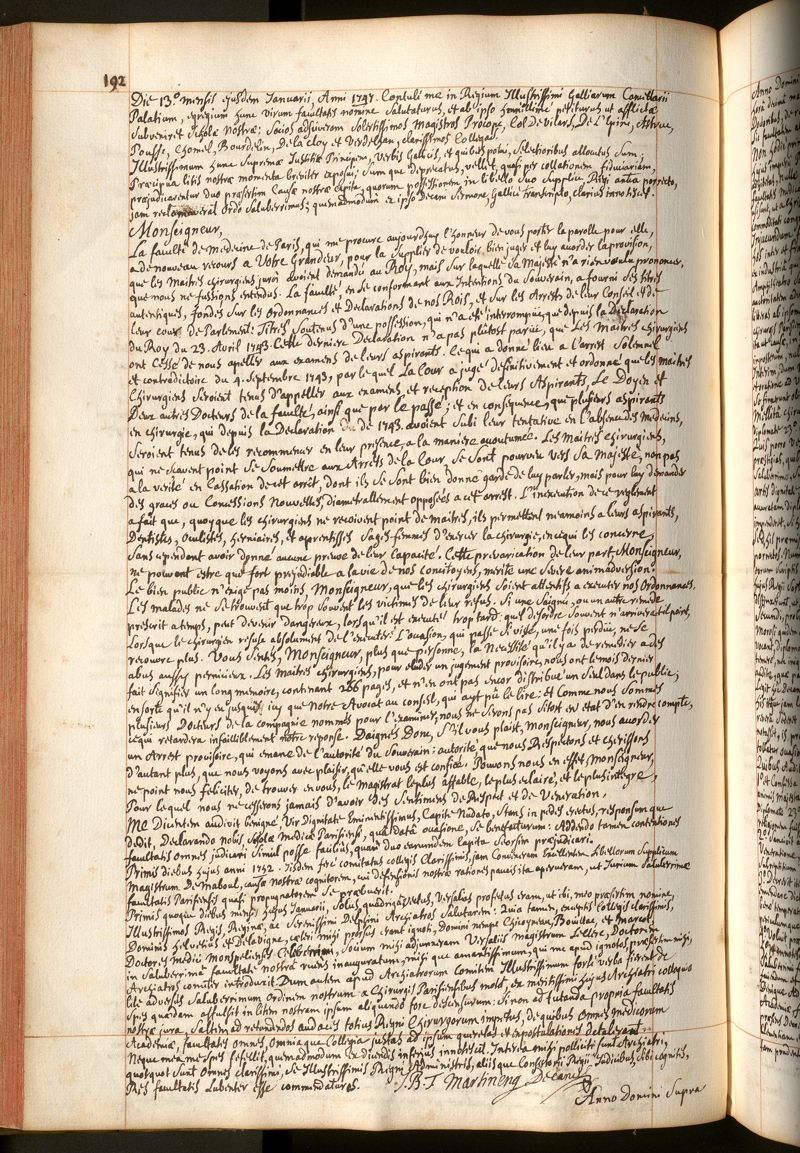 192
Die 13.º mensis ejusdem Januarii, Anni 1747. Contuli me in Regium Illustrissimi Galliarum Cancellarii
Palatium, egregium hunc virum facultatis nomine salutaturus, et ab ipso humillime petiturus ut afflictæ
subveniret scholæ Nostræ; Socios adsunto solertissimos magistros Procope, Col De Vilars, De L'Epine, Astruc,
Pousse, Chomel, Bourdelin, De la Cloy et Verdelhan, clarissimos Collegas.
Illustrissimum hunc Supremæ Justitiæ Principem, Verbis Gallicis, et quibus potui, Selectioribus allocutus Sum;
Præcipua litis nostræ momenta breviter exposui; Sum que deprecatus, vellet, quasi per collationem fiduciariam,
præjudicarentur duo præsertim Causæ nostræ Capita, quorum possessionem in libello suo supplici Regi antea porrecto,
jam reclamaverat ordo saluberrimus; quemadmodum ex ipso Decem Sermone, Gallice transcripto, clarius innotescet.
Monseigneur,
La faculté de medecine de Paris, qui me procure aujourdhuy l'honneur de vous porter la parolle pour elle,
a de nouveau recours a Votre Grandeur, pour la Supplier de vouloir bien juger et luy accorder la provision,
que les Maitres chirurgiens jurés avoient demandé au Roy, mais sur laquelle Sa Majesté n'a rien voulu prononcer,
que nous ne fussions entendus. La faculté en se conformant aux Intentions du Souverain, a fourni ses titres
autentiques, fondés sur les ordonnances et Declarations de nos Rois, et sur les Arrests de leur Conseil et de
leur cour de Parlement: Titres soutenus d'une possession, qui n'a eté interrompüe, que depuis la Declaration
du Roy du 23. Avril 1743. Cette derniere Declaration n'a pas plûtost parüe, que Les Maitres chirurgiens
ont cessé de nous apeller aux examens de leurs aspirants. Ce qui a donné lieu a l'arrest Solemnel
et contradictoire du 4. Septembre 1743, par lequel La Cour a jugé definitivement et ordonné que les Maitres
Chirurgiens Seroient tenus d'appeller aux examens et reception de leurs Aspirants, Le Doyen et
Deux autres Docteurs de la faculté, ainsi que par le passé; et en consequence, que plusieurs aspirants
en chirurgie, qui depuis la Declaration de 1743. avoient Subi leur tentative en l'absence des Medecins,
Seroient tenus de les recommencer en leur presence, a la maniere accoutumée. Les Maitres Chirurgiens,
qui ne scavent point se soumettre aux Arrets de la Cour se sont pourveu vers Sa Majesté, non pas
a la verité en Cassation de cet arrêt, dont ils se sont bien donné garde de luy parler, mais pour luy demander
des graces ou Concessions Nouvelles, diametrallement opposées a cet arrest. L'inexecution de ce reglement
a fait que, quoyque les chirurgiens ne recoivent point de maitres, ils permettent neamoins a leurs aspirants,
Dentistes, Oculistes, herniaires, et aprentisses Sages-femmes d'exercer la chirurgie, en ce qui les concerne,
sans cependant avoir donné aucune preuve de leur Capacité. Cette prevarication de leur part, Monseigneur,
ne pouvant estre que fort prejudiciable a la vie de nos concitoyens, merite une severe animadversion.
Le bien public n'exige pas moins, Monseigneur, que les chirurgiens soient attentifs a executer nos Ordonnances.
Les malades ne se trouvent que trop souvent les victimes de leur refus. Si une Saignée, ou un autre remede
prescrit a temps, peut devenir dangereux, lorsqu'il est executé trop tard: quel desordre Souvent n'arrivera-t'il point,
Lorsque le chirurgien refuse absolument de l'executer? L'occasion, qui passe si viste, une fois perdüe, ne se
recouvre plus. Vous Sentés, Monseigneur, plus que personne, la Necessité qu'il y a de remedier a des
abus aussy pernicieux. Les Maitres chirurgiens, pour eluder un jugement provisoire, nous ont le mois dernier
fait signifier un long memoire, contenant 226 pages, et n'en ont pas encor distribué un seul dans le public;
en sorte qu'il n'y eu jusques icy que notre Avocat au conseil, qui ayt pû le lire: et Comme nous sommes
plusieurs Docteurs de la compagnie nommés pour l'examiner, nous ne serons pas sitost en etat d'en rendre compte,
ce qui retardera infailliblement notre reponse. Daignés Donc, s'il vous plait, Monseigneur, nous accorder
un Arrest provisoire, qui emane de l'autorité du Souverain: autorité que nous Respectons et cherissons
d'autant plus, que nous voyons avec plaisir, qu'elle vous est confiée. Pouvons nous en effet, Monseigneur,
ne point nous feliciter, de trouver en vous, le magistrat le plus affable, le plus eclairé, et le plus integre,
Pour lequel nous ne cesserons jamais d'avoir des Sentimens de Respect et de Veneration.
Me Dicentem audivit benigne Vir Dignitate Eminentissimus, Capite Nudato, Stans in pedes erectus, responsum que
dedit, Declarando nobis, scholæ Medicæ Parisiensi, qua data occasione, se benefacturum: Addendo tamen contentiones
facultatis omnes judicari simul posse facilius, quam duo earundem Capita Seorsim præjudicari.
Primis diebus hujus anni 1752. Iisdem fere comitatus collegis Clarissimis, jam Conveneram Excellentem Libellorum Supplicum
Magistrum De Maboul, causæ nostræ cognitorem, cui defensionis nostræ rationes paucis ita aperueram, ut Jurium Saluberrimæ
facultatis Parisiensis quasi propugnatorem se præbuerit.
Primis quoque diebus mensis hujus Januarii, Solus, quadriga vectus, Versalias profectus eram, ut ibi, meo præsertim nomine,
Illustrissimos Regis, Reginæ, ac Serenissimi Delphini Archiatros Salutarem. Quia tamen, exceptis Collegis clarissimis,
Dominis Helvetius et De la Vigne, cæteri mihi prorsus erant ignoti, Domini nempe Chicoyneau, Bouillac, et Marcot,
Doctores Medici Monspelienses Celeberrimi, Socium mihi adjunxeram Versaliis magistrum LeBec, Doctorem
in Saluberrima facultate nostra nuper inauguratum, mihi que amantissimum, qui me apud ignotos, præsertim mihi,
Archiatros comiter introduxit. Dum autem apud Archiatrorum Comitem Illustrissimum forti verba fierent de
lite adversus Saluberrimum ordinem nostrum a Chirurgis Parisiensibus mota, ex meritissimi hujus Archiatri colloquio
spes quædam affulsit in litem nostram ipsum aliquando fore descensurum: Si non ad tutanda propria facultatis
nostræ jura, saltem ad retundendos audaces totius Regni Chirurgorum impetus, de quibus omnes medicorum
Academiæ, facultates omnes, omniaque Collegia justas ad ipsum querelas et expostulationes detulerant.
Neque mea me spes fefellit, quemadmodum ex dicendis inferius innotescet. Interea mihi polliciti sunt Archiatri,
quotquot sunt omnes clarissimi, se Illustrissimis Regni Administris, aliisque Consistorii Regii Judicibus sibi cognitis,
Res facultatis lubenter esse commendaturos. J. B. T. Martinenq Decanus
Anno Domini Supra